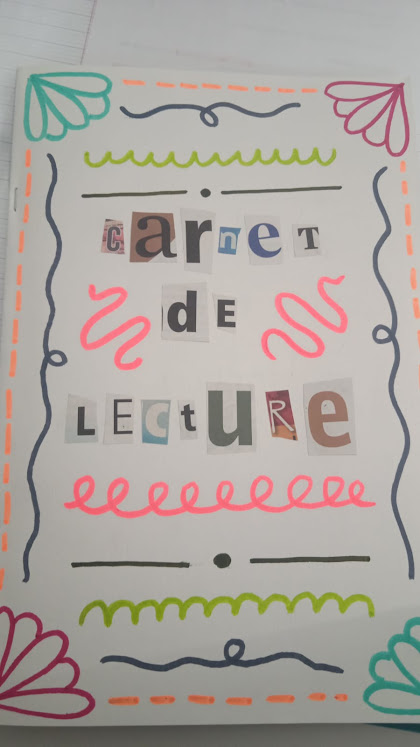 carneT
dE
LECtuRe